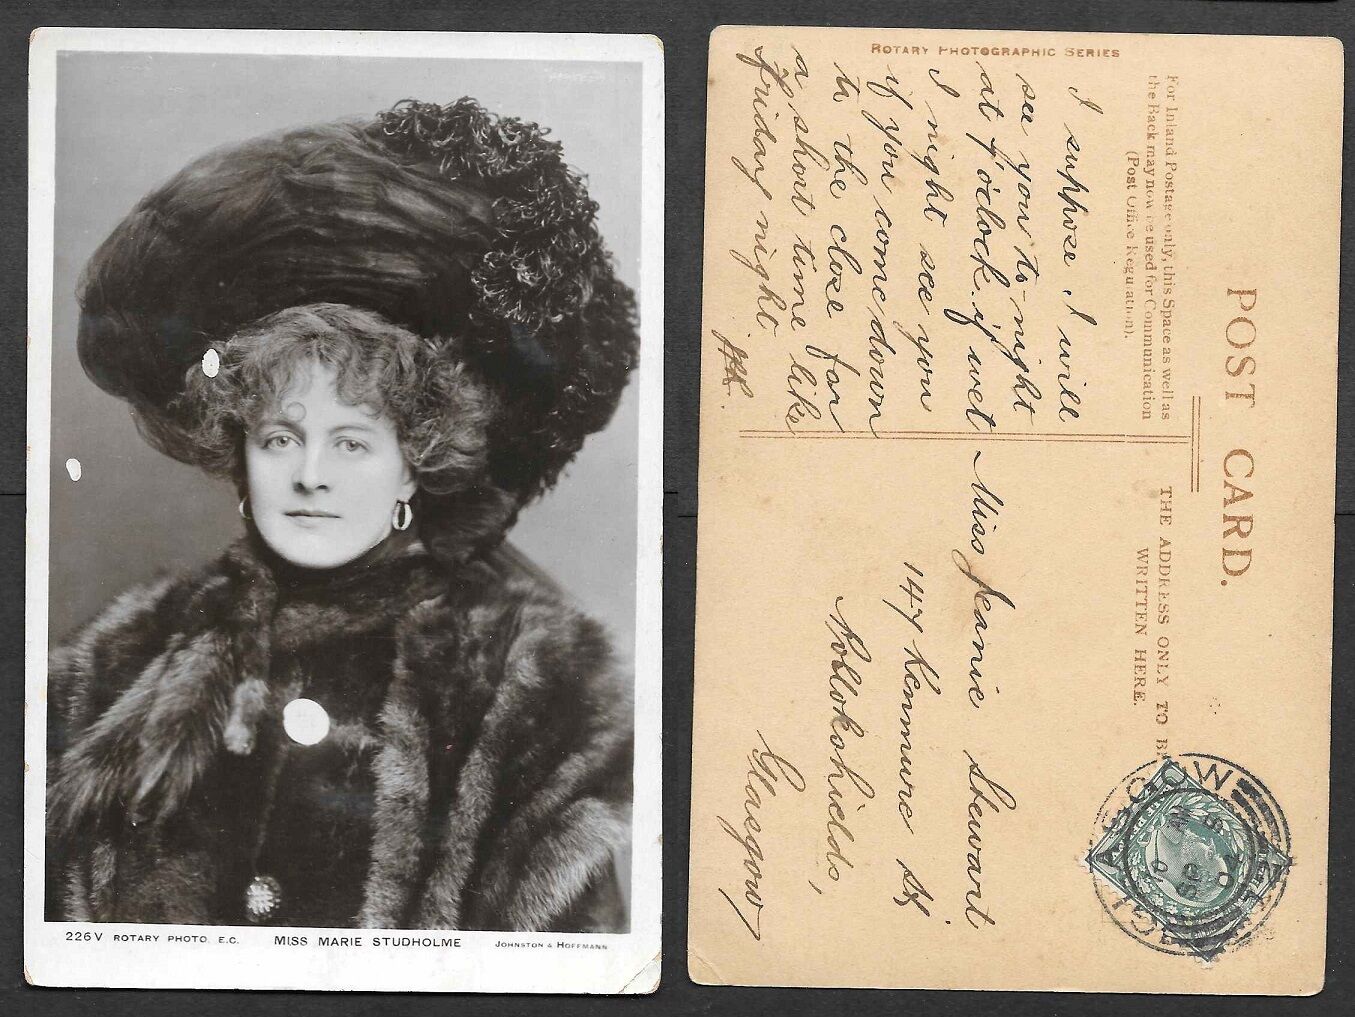 226 V ROTARY PHOTO. E.C. MISS MARIE STUDHOLME JOHNSTON & HOFFMANN
ROTARY PHOTOGRAPHIC SERIES
POST CARD.
For Inland Postage only, this Space as well as
the Back may now be used for Communication
(Post Office Regulation).
THE ADDRESS ONLY TO BE
WRITTEN HERE.
I suppose I will
see you to-night
at 7 o'clock. if wet
I night see you
if you come down
to the close for
a short time like
Friday night
Miss Jeanie Stewart
147 Kenmure St
Pollokshields,
Glasgow
GLASGOW